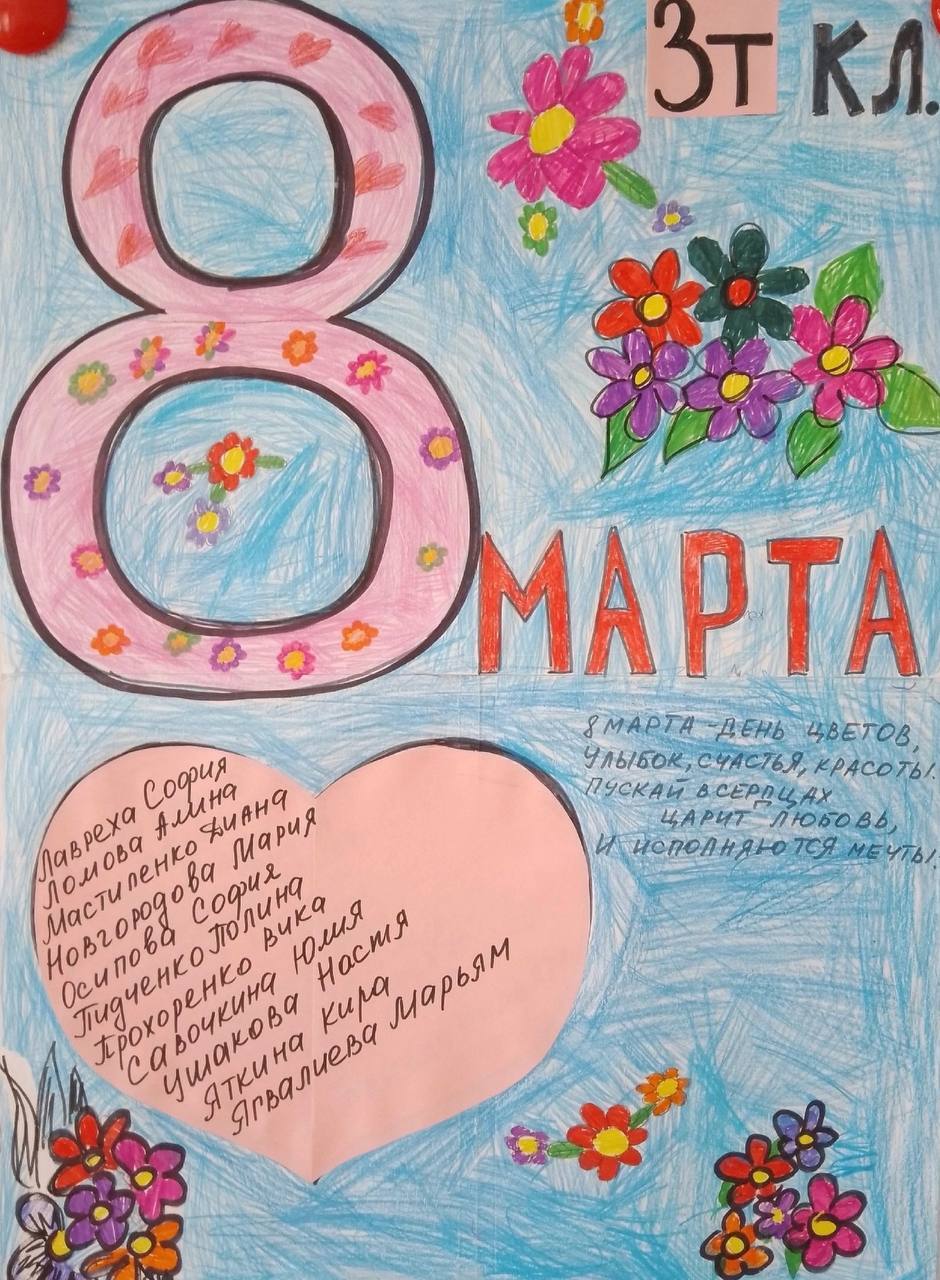 3т кл.
8
МАРТА
8 МАРТА - ДЕНЬ ЦВЕТОВ,
УЛЫБОК, СЧАСТЬЯ, КРАСОТЫ.
ПУСКАЙ В СЕРДЦАХ
ЦАРИТ ЛЮБОВЬ,
И ИСПОЛНЯЮТСЯ МЕЧТЫ.
Лавреха София
Ломова Алина
Мастипенко Диана
Новгородова Мария
Осипова София
Пидченко Полина
Прохоренко Вика
Савочкина Юлия
Ушакова Настя
Яткина Кира
Ягвалиева Марьям